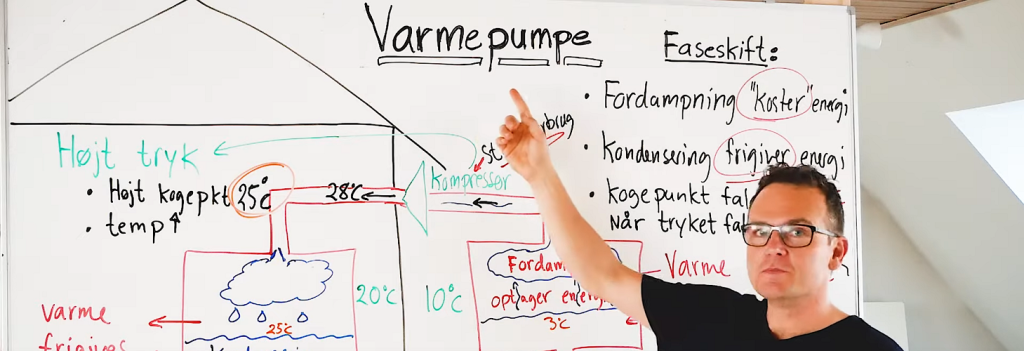 Varmepumpe
Faseskift:
• Fordampning "koster" energi
• Kondensering frigiver energi
• Kogepunkt
Når tryket
Højt tryk
• Højt kogepkt 25°C
• temp↑
28°C
Kompressor
20°C
10°C
optager
3°C
Varme
25°C
varme